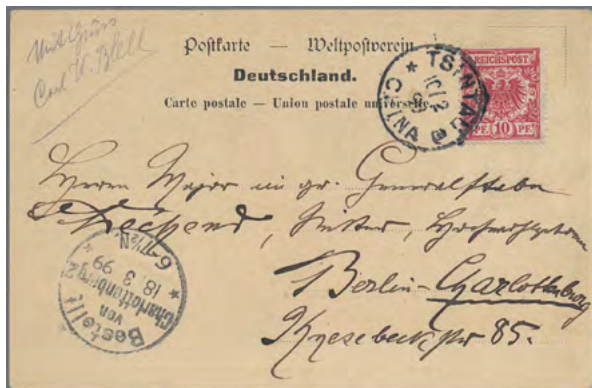 Mit Gruss
Carl H. Blell
Postkarte — Weltpostverein
Deutschland.
Carte postale — Union postale universelle.
REICHSPOST
10 PF
TSINTAU
10/2
99
CHINA
Herrn Major im gr. Generalstabe
Ritter, Hochwohlgeboren
Berlin-Charlottenburg
Knesebeckstr 85.
Bestellt
von
Charlottenburg 2
18. 3. 99
6-7½N.